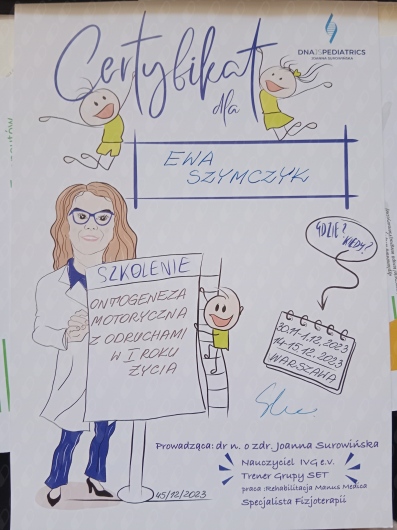 Certyfikat
DNA IS PEDIATRICS
JOANNA SUROWIŃSKA
dla
EWA
SZYMCZYK
GDZIE?
KIEDY?
SZKOLENIE
ONTOGENEZA
MOTORYCZNA
Z ODRUCHAMI
W I ROKU
ŻYCIA
30.11-1.12.2023
14-15.12.2023
WARSZAWA
Prowadząca: dr n. o zdr. Joanna Surowińska
Nauczyciel IVG e.v.
Trener Grupy SET
praca :Rehabilitacja Manus Medica
Specjalista Fizjoterapii
45/12/2023